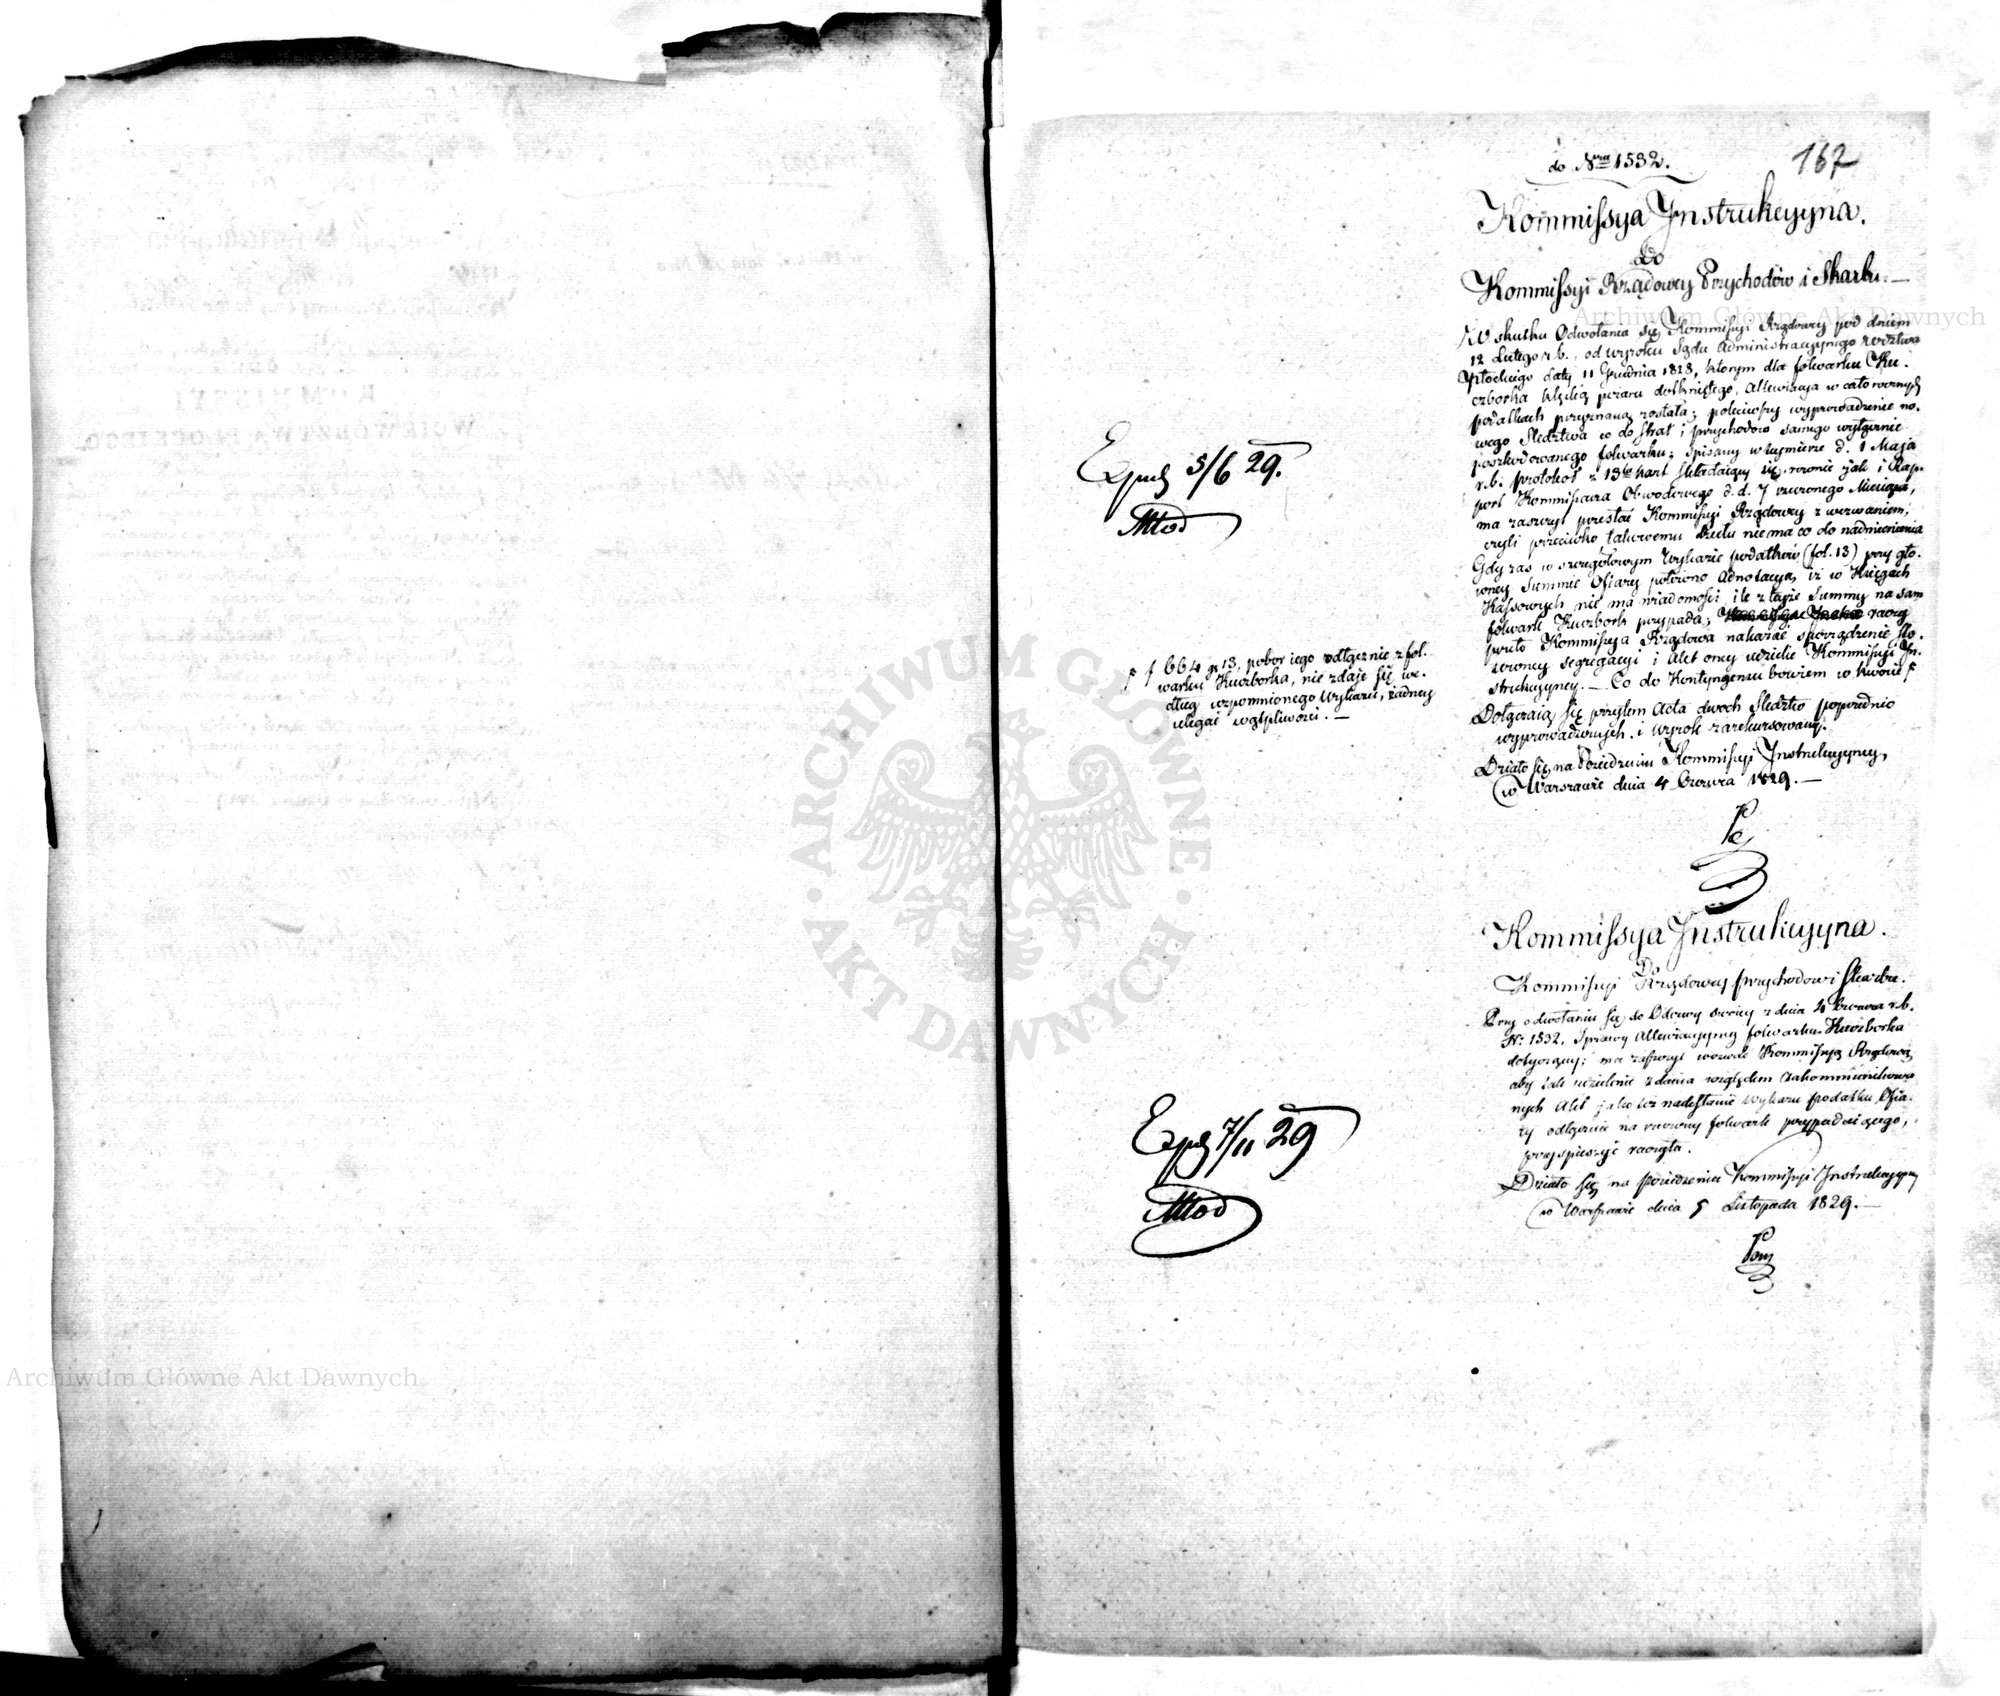 do Nru 1532.
167
Kommissya Instrukcyyna.
do
Kommissyi Rządowey Przychodów i Skarbu.—
W skutku Odwołania się Kommissyi Rządowey pod dniem
12 Lutego r. b., od wyroku Sądu Administracyynego Wodztwa
Płockiego daty 11 Grudnia 1828, którym dla folwarku Ku-
czborka klęską pożaru dotkniętego, Allewiacya w całorocznych
podatkach przyznaną została; poleciwszy wyprowadzenie no-
wego Śledztwa co do strat i przychodów samego wyłącznie
poszkodowanego folwarku; spisany w d. 1 Maja
r. b. protokół z 13 kart składaiący się, rownie jak i Rap-
port Kommissarza Obwodowego d. d. 7 rzeczonego Miesiąca,
ma zaszczyt przesłać Kommissyi Rządowey z wezwaniem,
czyli przeciwko takowemu nie ma co do nadmienienia
Gdy zaś w szczegółowym Wykazie podatków (fol. 13) przy głó-
wney Summie Ofiary położono Adnotacyą, iż w Xięgach
Kassowych nie ma wiadomości ile z tejże Summy na sam
folwark Kuczbork przypada; raczy
przeto Kommissya Rządowa nakazać sporządzenie sto-
sowney segregacyi i Akt oney udzielić Kommissyi In-
strukcyyney.— Co do Kontyngensu bowiem w kwocie
f 1664 g 13, pobor iego odłącznie z fol-
warku Kuczborka, nie zdaje się we-
dług wspomnionego Wykazu, żadney
ulegać wątpliwości.—
Dołączaią się przytem Acta dwoch Śledztw poprzednio
wyprowadzonych i wyrok zarekursowany.
Działo się na Posiedzeniu Kommissyi Instrukcyyney
w Warszawie dnia 4 Czerwca 1829.—
Exped 5/6 29.
Młod
Kommissya Instrukcyyna.
Do
Kommissyi Rządowey Przychodow i Skarbu.
Przy odwołaniu się do Odezwy swoiey z dnia 4 Czerwca r. b.
N: 1532, Sprawy Allewiacyyney folwarku Kuczborka
dotyczącey; ma zaszczyt wezwać Kommissyą Rządową,
aby tak udzielenie zdania względem zakommunikowa-
nych Akt jako też nadesłanie wykazu podatku Ofia-
ry odłącznie na rzeczony folwark przypadaiącego,
przyspieszyć raczyła.
Działo się na posiedzeniu Kommissyi Instrukcyyney
w Warszawie dnia 5 Listopada 1829.—
Exped 7/11 29
Młod
Archiwum Główne Akt Dawnych
Archiwum Główne Akt Dawnych
ARCHIWUM GŁÓWNE
AKT DAWNYCH